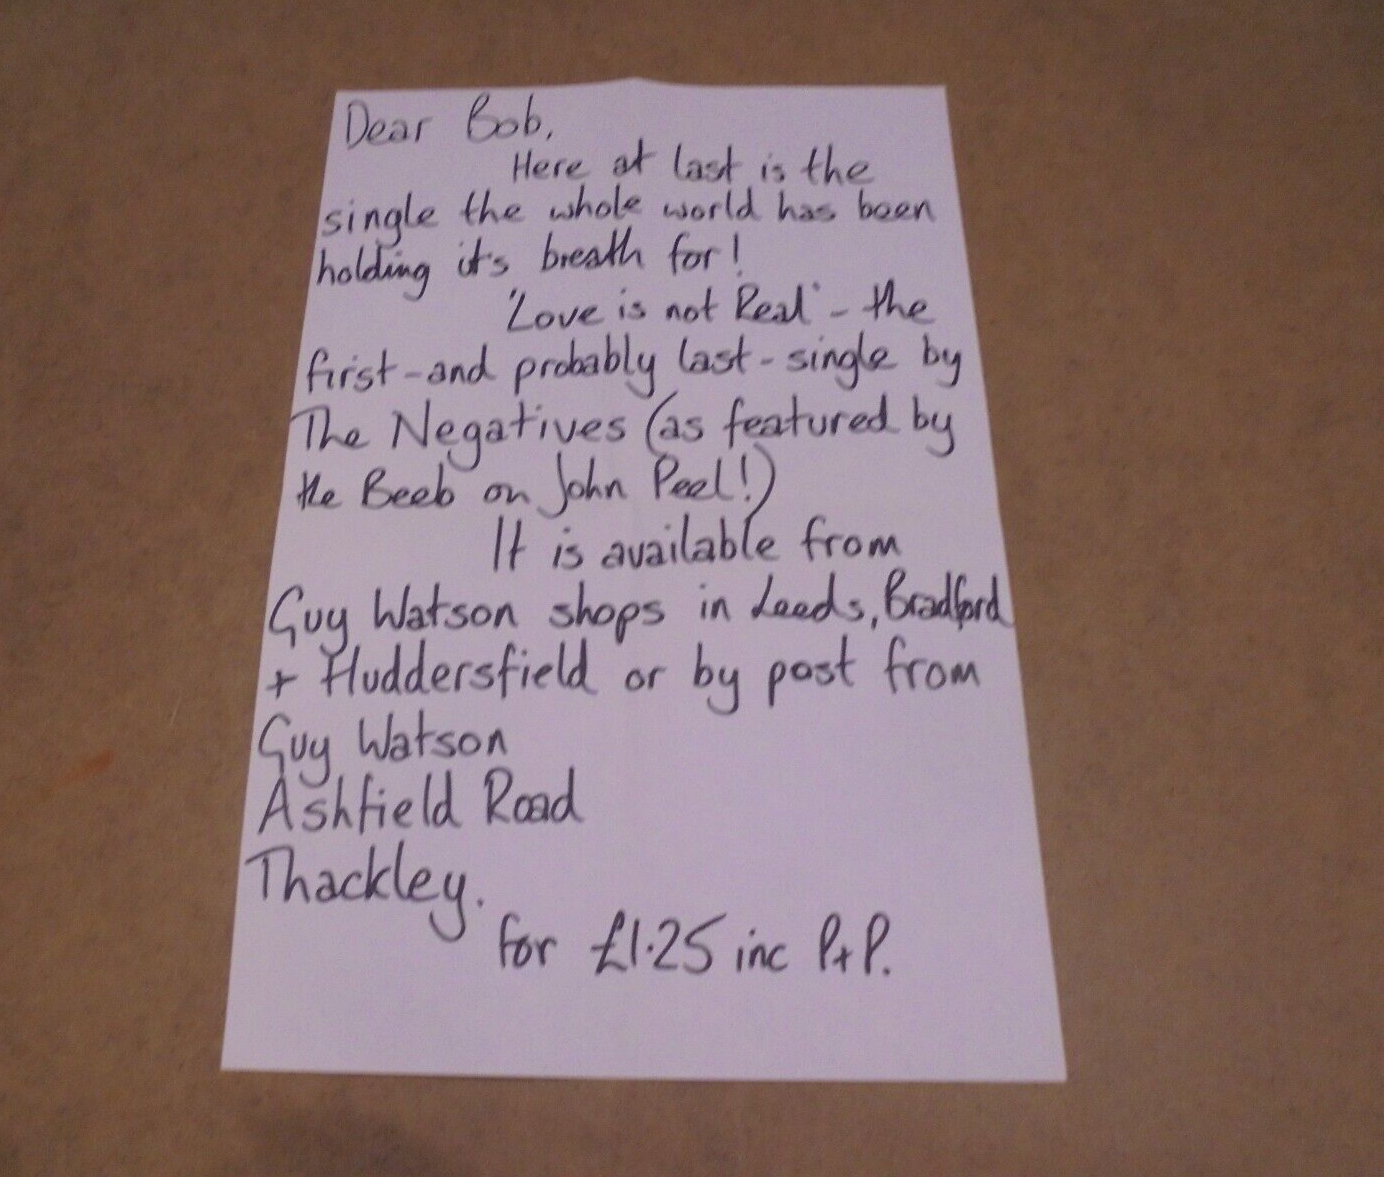 Dear Bob,
Here at last is the
single the whole world has been
holding it's breath for!
'Love is not Real' - the
first - and probably last - single by
The Negatives (as featured by
the Beeb on John Peel!)
It is available from
Guy Watson shops in Leeds, Bradford
+ Huddersfield or by post from
Guy Watson
Ashfield Road
Thackley.
for £1.25 inc P+P.